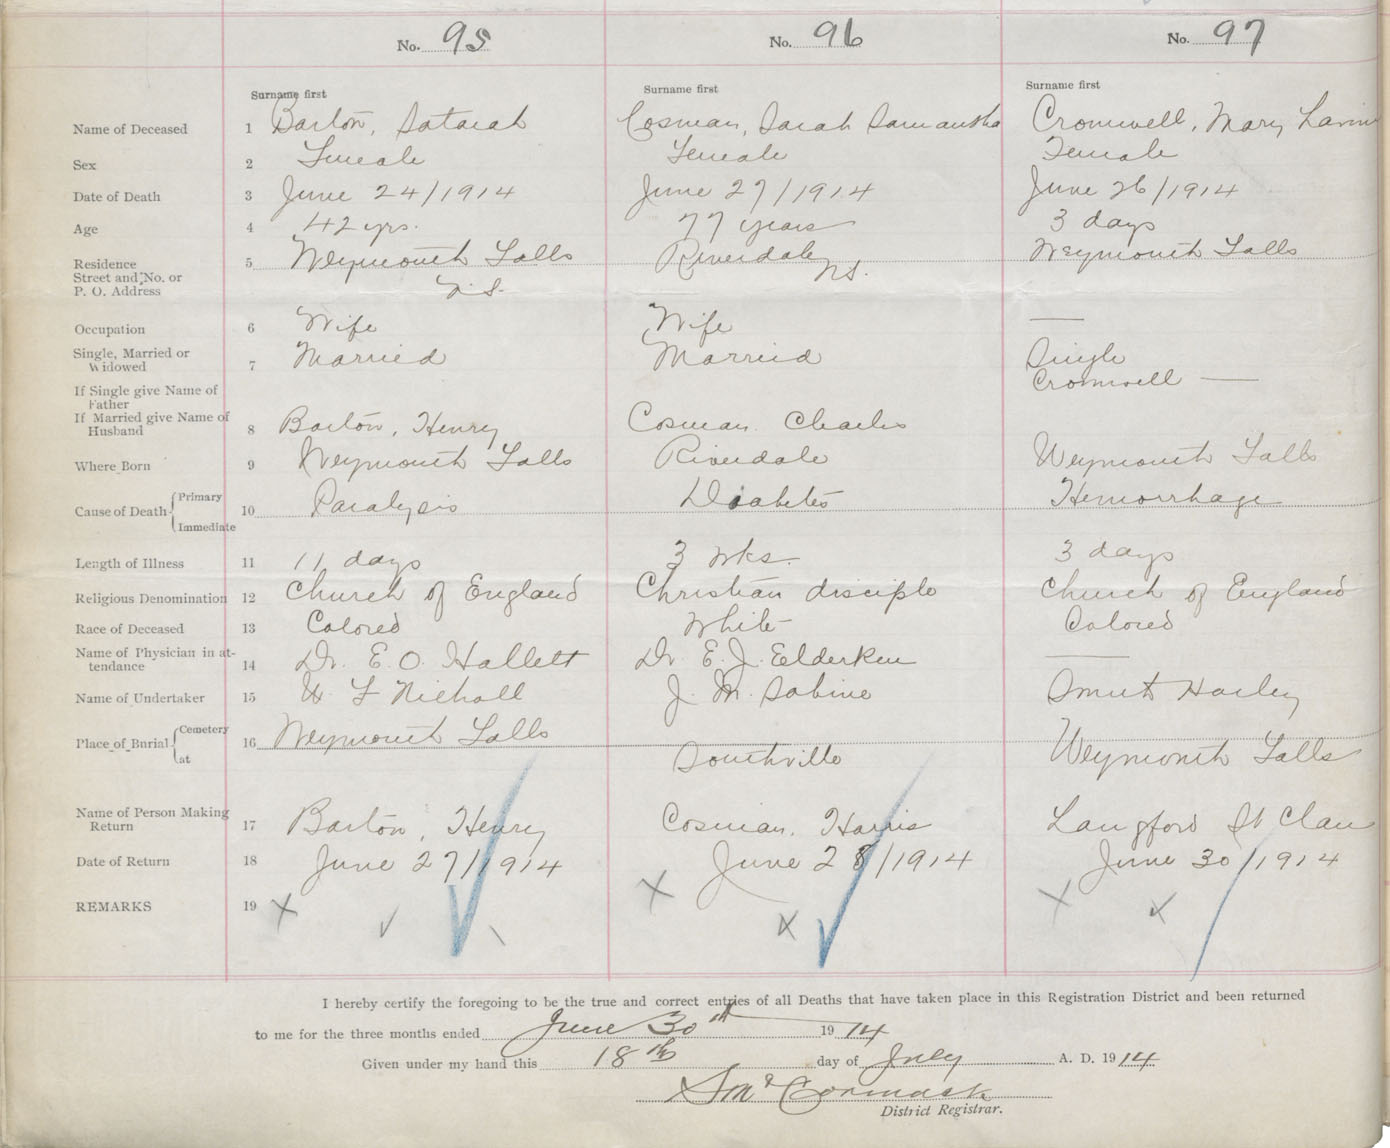 No. 95 No. 96 No. 97
Surname first Surname first Surname first
Name of Deceased 1 Barton, Satarah Cosman, Sarah Samantha Cromwell, Mary
Sex 2 Female Female Female
Date of Death 3 June 24/1914 June 27/1914 June 26/1914
Age 4 42 yrs. 77 years 3 days
Residence 5 Weymouth Falls Riverdale N.S. Weymouth Falls
Street and No. or
P. O. Address N.S.
Occupation 6 Wife Wife —
Single, Married or
Widowed 7 Married Married Single
If Single give Name of
Father Cromwell —
If Married give Name of
Husband 8 Barton, Henry Cosman. Charles
Where Born 9 Weymouth Falls Riverdale Weymouth Falls
Cause of Death Primary
10 Paralysis Diabetes Hemorrhage
Immediate
Length of Illness 11 11 days 3 wks. 3 days
Religious Denomination 12 Church of England Christian disciple Church of England
Race of Deceased 13 Colored White Colored
Name of Physician in at-
tendance 14 Dr. E. O. Hallett Dr. E. J. Elderkin —
Name of Undertaker 15 W. F Nicholl J. M. Sabine
Place of Burial Cemetery
16 Weymouth Falls Southville Weymouth Falls
at
Name of Person Making
Return 17 Barton, Henry Cosman, Harris Langford St Clair
Date of Return 18 June 27/1914 June 28/1914 June 30/1914
REMARKS 19 X X X
I hereby certify the foregoing to be the true and correct entries of all Deaths that have taken place in this Registration District and been returned
to me for the three months ended June 30th 1914
Given under my hand this 18th day of July A. D. 1914
McCormack
District Registrar.